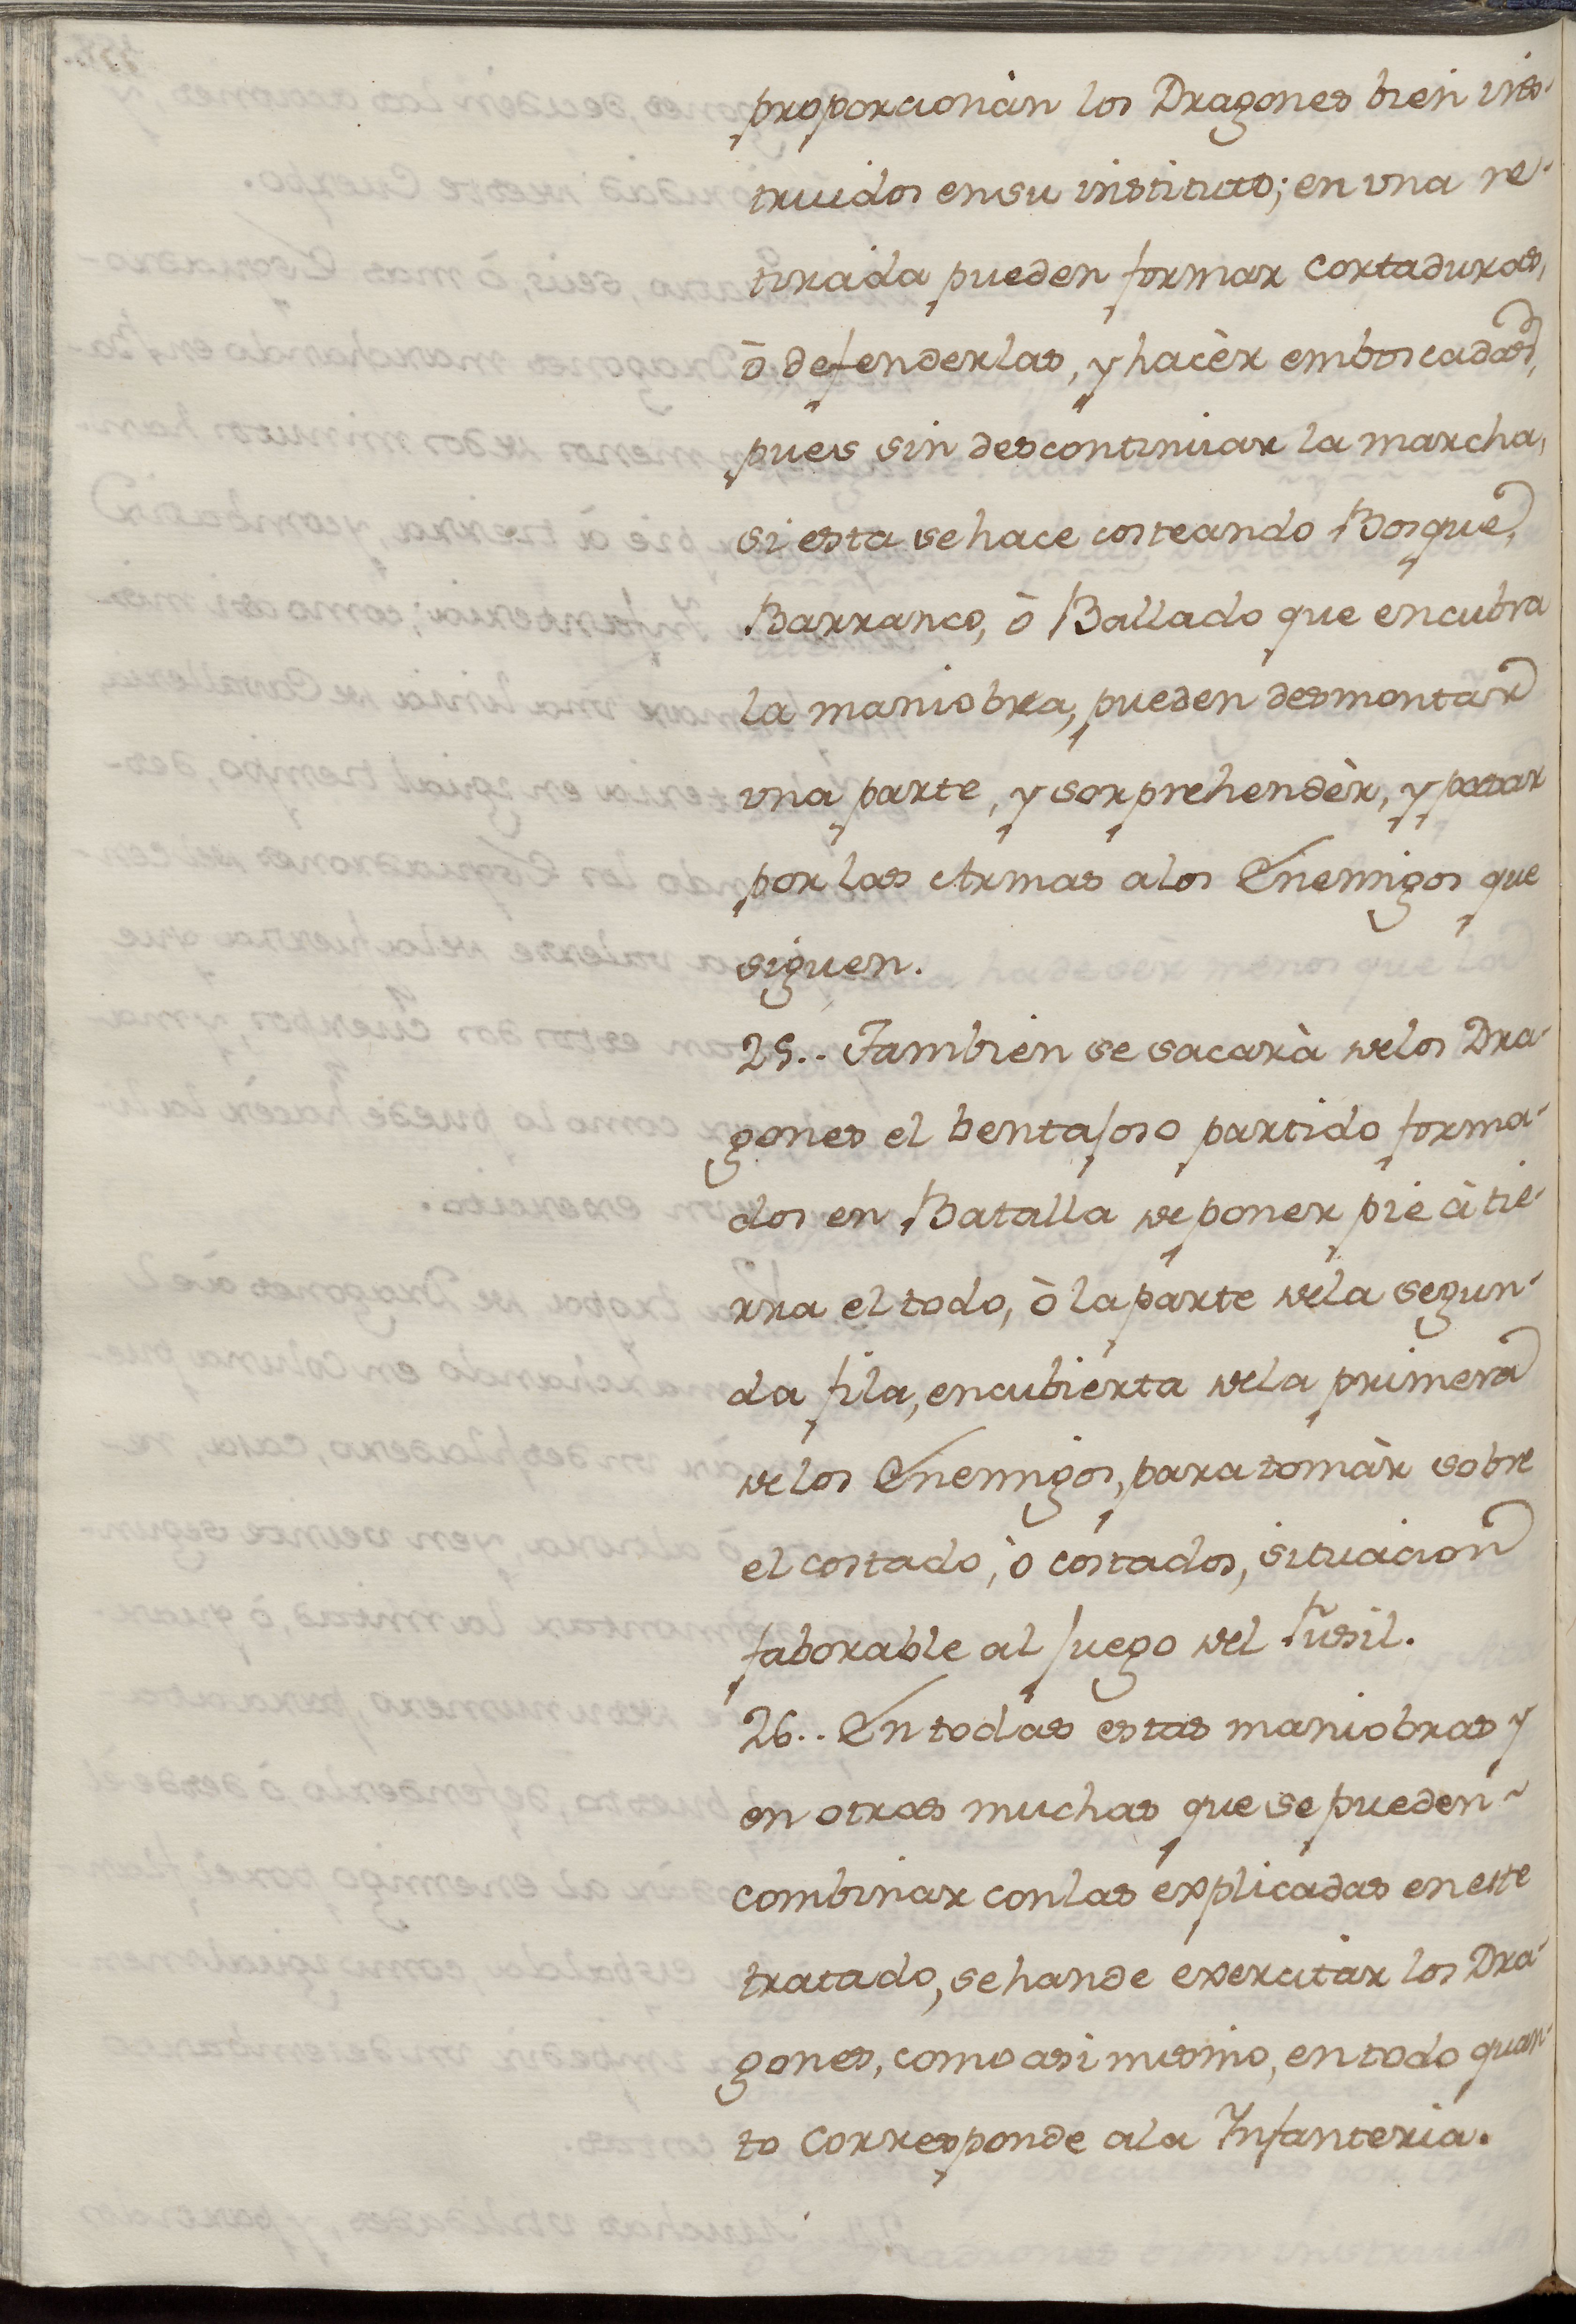 proporcionàn los Dragones bien ins-
truidos en su instituto; en una re-
tirada pueden formar cortaduras,
ò defenderlas, y hacèr emboscadas,
pues sin descontinuar la marcha,
si esta se hace costeando Bosque,
Barranco, ò Ballado que encubra
la maniobra, pueden desmontar
una parte, y sorprehendèr, y pasar
por las Armas a los Enemigos que
siguen.
25.. Tambien se sacarà de los Dra-
gones el bentajoso partido forma-
dos en Batalla de poner pie à tie-
rra el todo, ò la parte de la segun-
da fila, encubierta de la primera
de los Enemigos, para tomàr sobre
el costado, ò costados, situacion
faborable al fuego del Fusil.
26.. En todas estas maniobras y
en otras muchas que se pueden
combinar con las explicadas en este
tratado, se han de exercitar los Dra-
gones, como asi mismo, en todo quan-
to corresponde a la Infanteria.